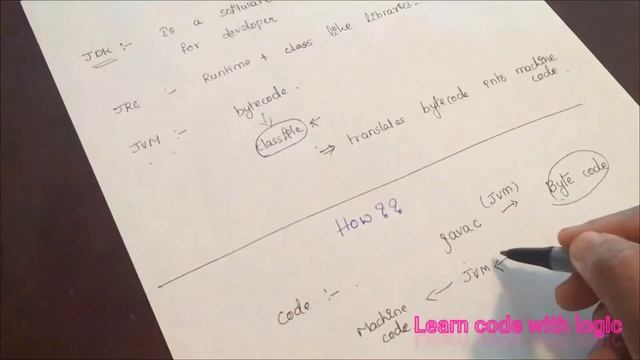 JDK :- Is a software
for developer
JRE :- Runtime + class like libraries.
JVM :- bytecode.
classfile
⇒ translates bytecode into machine
code.
How ??
javac (JVM) → Byte code
Code :- .
JVM ←
← Machine
code
Learn code with logic